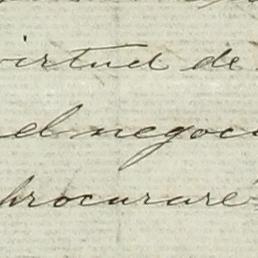 virtud de
el negoci
procuraré